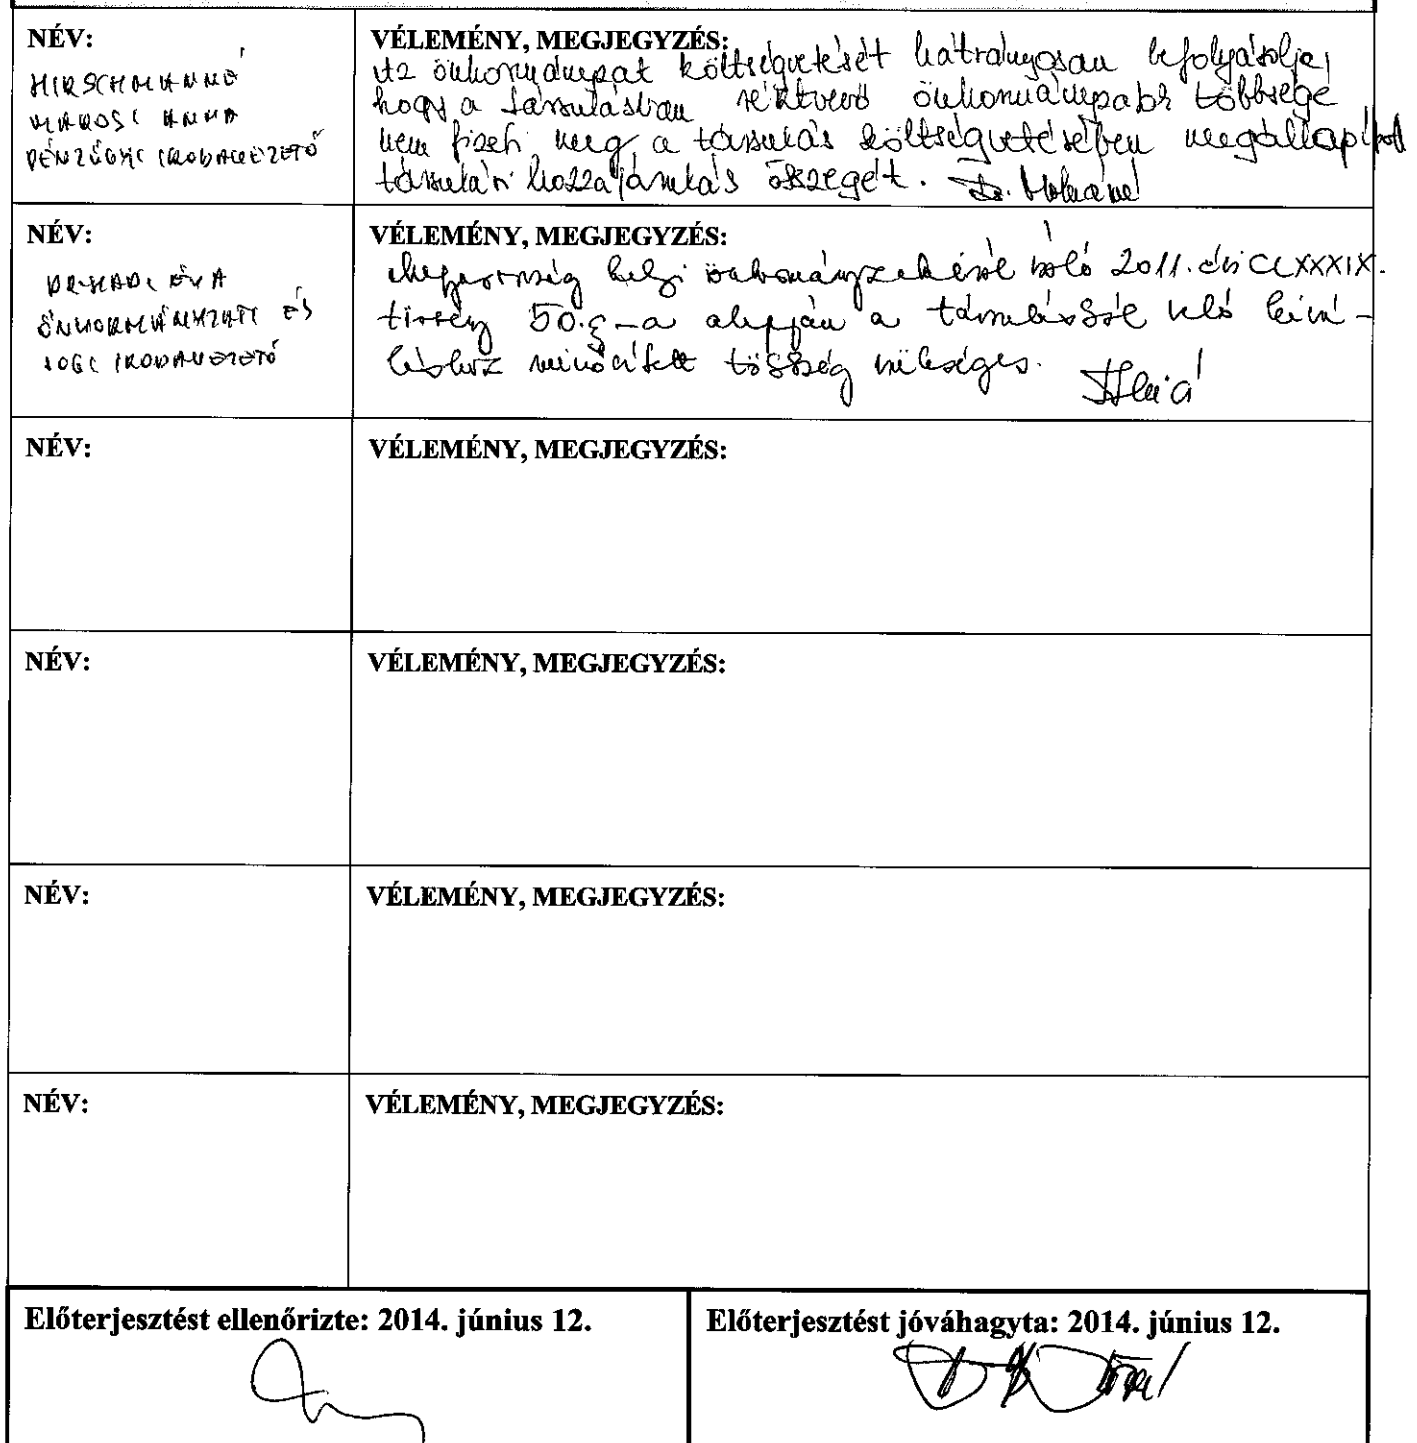 NÉV:
HIRSCHMANNÉ
MAROSI ANNA
PÉNZÜGYI IRODAVEZETŐ
VÉLEMÉNY, MEGJEGYZÉS:
Az önkormányzat költségvetését hátrányosan befolyásolja,
hogy a társulásban résztvevő önkormányzatok többsége
nem fizeti meg a társulás költségvetésében megállapított
társulási hozzájárulás összegét.
NÉV:
DR. HADI ÉVA
ÖNKORMÁNYZATI ÉS
JOGI IRODAVEZETŐ
VÉLEMÉNY, MEGJEGYZÉS:
Magyarország helyi önkormányzatairól szóló 2011. évi CLXXXIX.
törvény 50.§-a alapján a társulásból való kivá-
láshoz minősített többség szükséges.
NÉV:
VÉLEMÉNY, MEGJEGYZÉS:
NÉV:
VÉLEMÉNY, MEGJEGYZÉS:
NÉV:
VÉLEMÉNY, MEGJEGYZÉS:
NÉV:
VÉLEMÉNY, MEGJEGYZÉS:
Előterjesztést ellenőrizte: 2014. június 12.
Előterjesztést jóváhagyta: 2014. június 12.